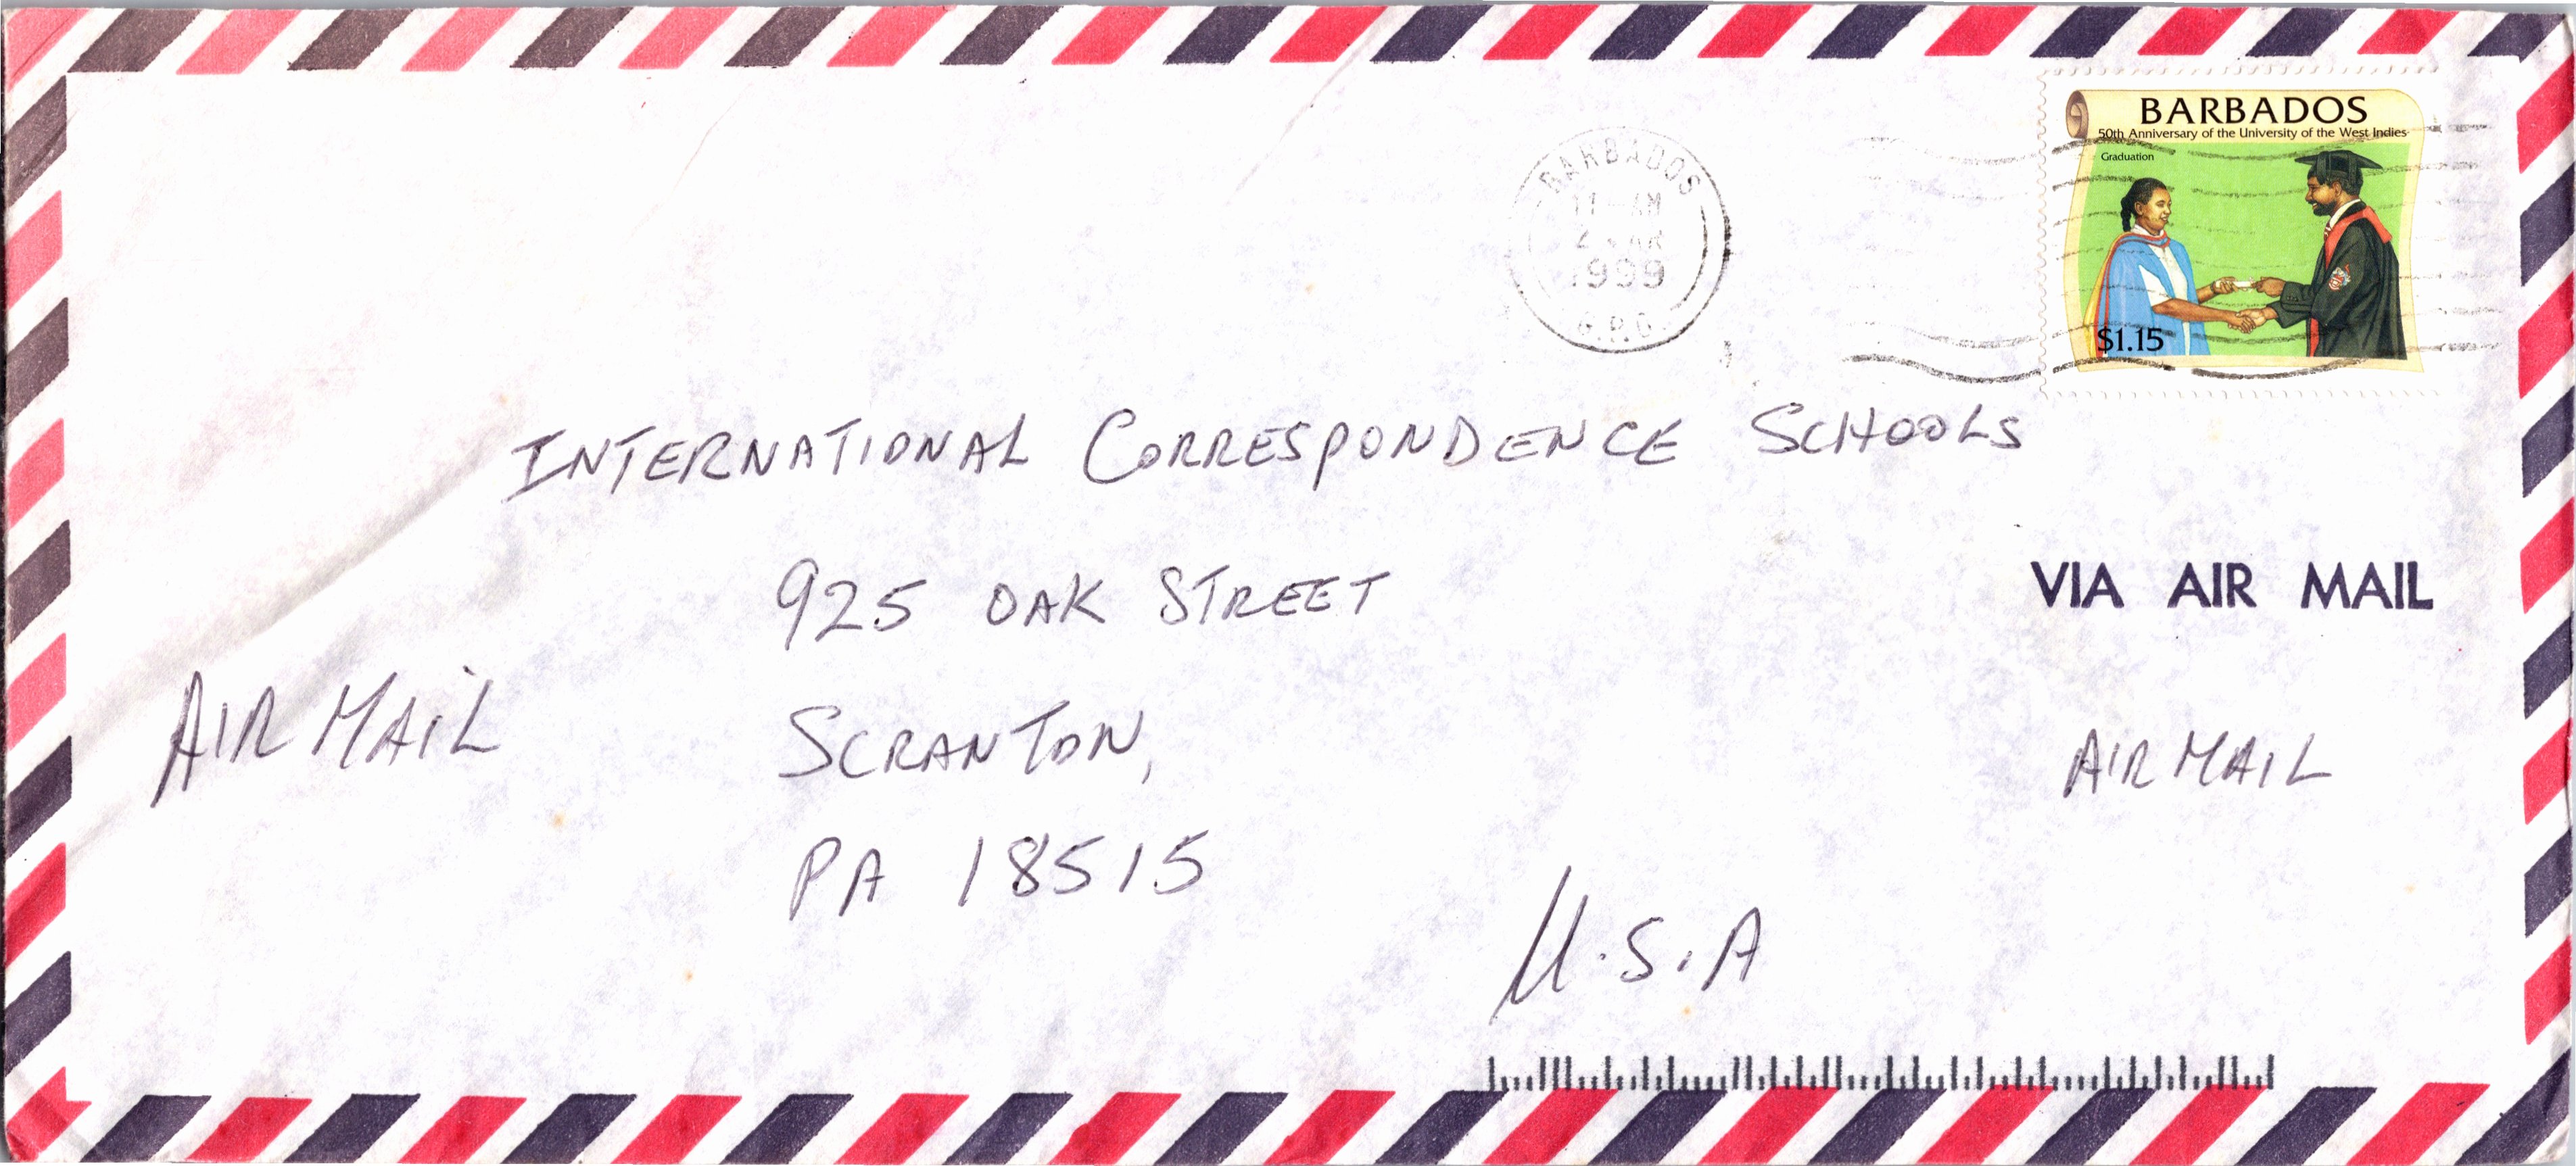 BARBADOS
50th Anniversary of the University of the West Indies
Graduation
$1.15
BARBADOS
11 AM
1999
G.P.O.
INTERNATIONAL CORRESPONDENCE SCHOOLS
925 OAK STREET
VIA AIR MAIL
AIR MAIL
SCRANTON,
AIR MAIL
PA 18515
U.S.A